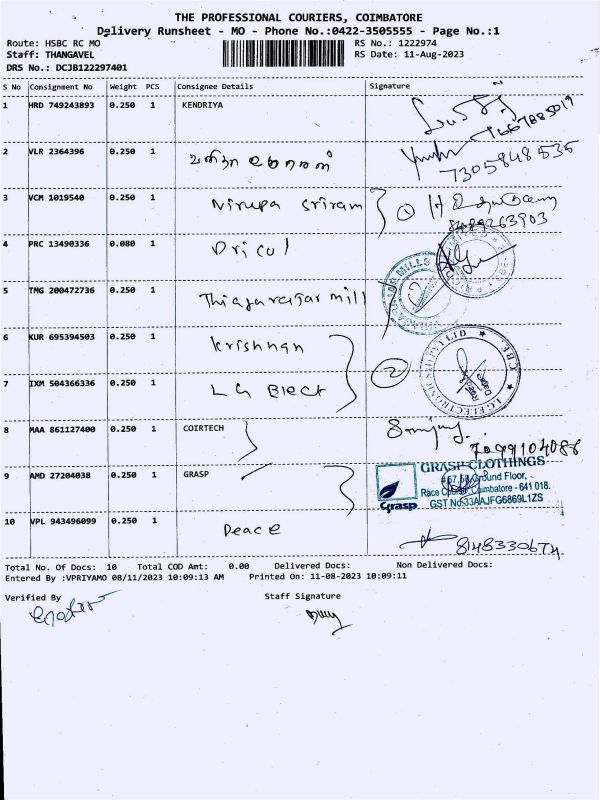 THE PROFESSIONAL COURIERS, COIMBATORE
Delivery Runsheet - MO - Phone No.:0422-3505555 - Page No.:1
Route: HSBC RC MO RS No.: 1222974
Staff: THANGAVEL RS Date: 11-Aug-2023
DRS No.: DCJB122297401
S No Consignment No Weight PCS Consignee Details Signature
1 HRD 749243893 0.250 1 KENDRIYA
9667885019
2 VLR 2364396 0.250 1
7305848535
3 VCM 1019540 0.250 1 Nirupa sriram 1
8489263903
4 PRC 13490336 0.080 1 Dricul
5 TMG 200472736 0.250 1 Thiagarajar mill
6 KUR 695394503 0.250 1 Krishnan
7 IXM 504366336 0.250 1 LG Elect 2
8 MAA 861127400 0.250 1 COIRTECH
7099104088
9 AMD 27204038 0.250 1 GRASP
GRASP CLOTHINGS
Ground Floor,
Race Course, Coimbatore - 641 018.
Grasp GST No:33AAJFG6869L1ZS
10 VPL 943496099 0.250 1 Peace
8148330674
Total No. Of Docs: 10 Total COD Amt: 0.00 Delivered Docs: Non Delivered Docs:
Entered By :VPRIYAMO 08/11/2023 10:09:13 AM Printed On: 11-08-2023 10:09:11
Verified By Staff Signature